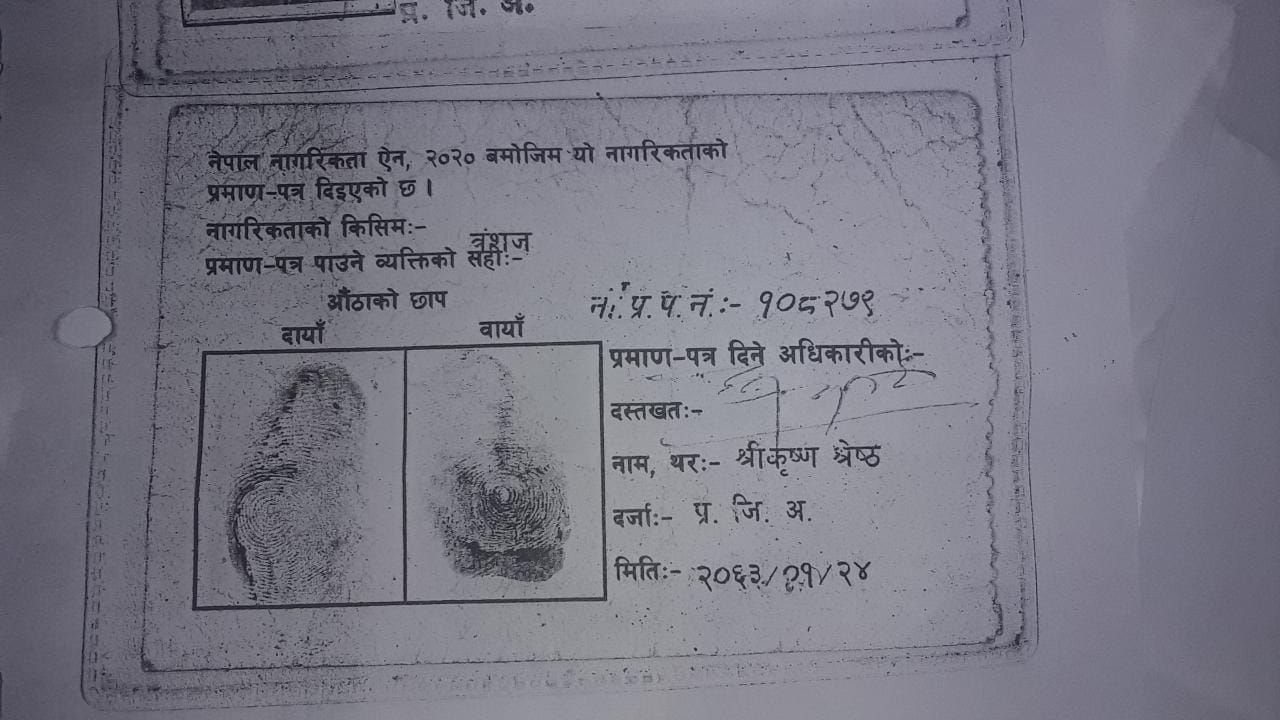 प्र. जि. अ.
नेपाल नागरिकता ऐन, २०२० बमोजिम यो नागरिकताको
प्रमाण-पत्र दिइएको छ ।
नागरिकताको किसिमः- वंशज
प्रमाण-पत्र पाउने व्यक्तिको सहीः-
औंठाको छाप
दायाँ वायाँ
ना. प्र. प. नं.:- १०८२७९
प्रमाण-पत्र दिने अधिकारीकोः-
दस्तखतः-
नाम, थरः- श्रीकृष्ण श्रेष्ठ
दर्जाः- प्र. जि. अ.
मितिः- २०६३/११/२४